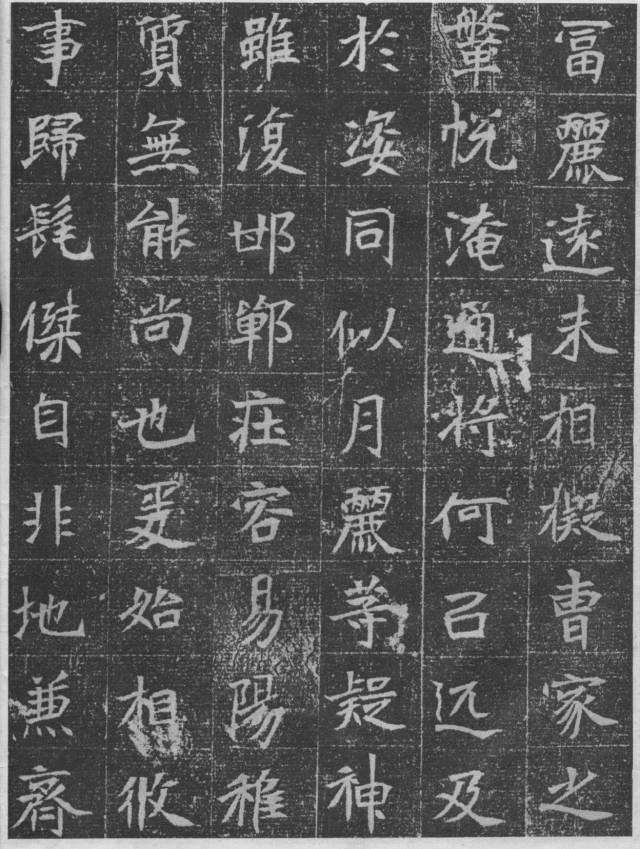 冨麗遠未相擬曹家之
鞶帨淹通將何以远及
於姿同似月麗等疑神
雖復邯鄲莊容易陽稚
質無能尚也爰始相攸
事歸髦傑自非地兼齊